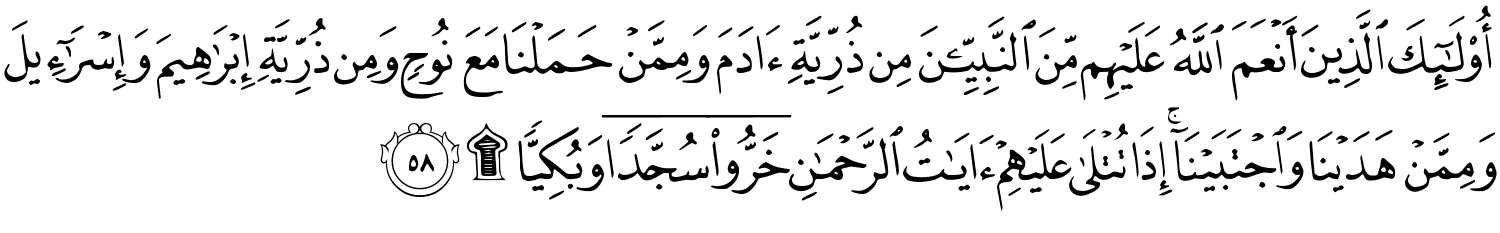 أُوْلَٰٓئِكَ ٱلَّذِينَ أَنۡعَمَ ٱللَّهُ عَلَيۡهِم مِّنَ ٱلنَّبِيِّـۧنَ مِن ذُرِّيَّةِ ءَادَمَ وَمِمَّنۡ حَمَلۡنَا مَعَ نُوحٖ وَمِن ذُرِّيَّةِ إِبۡرَٰهِيمَ وَإِسۡرَٰٓءِيلَ
وَمِمَّنۡ هَدَيۡنَا وَٱجۡتَبَيۡنَآۚ إِذَا تُتۡلَىٰ عَلَيۡهِمۡ ءَايَٰتُ ٱلرَّحۡمَٰنِ خَرُّواْ سُجَّدٗا وَبُكِيّٗا ۩ ٥٨